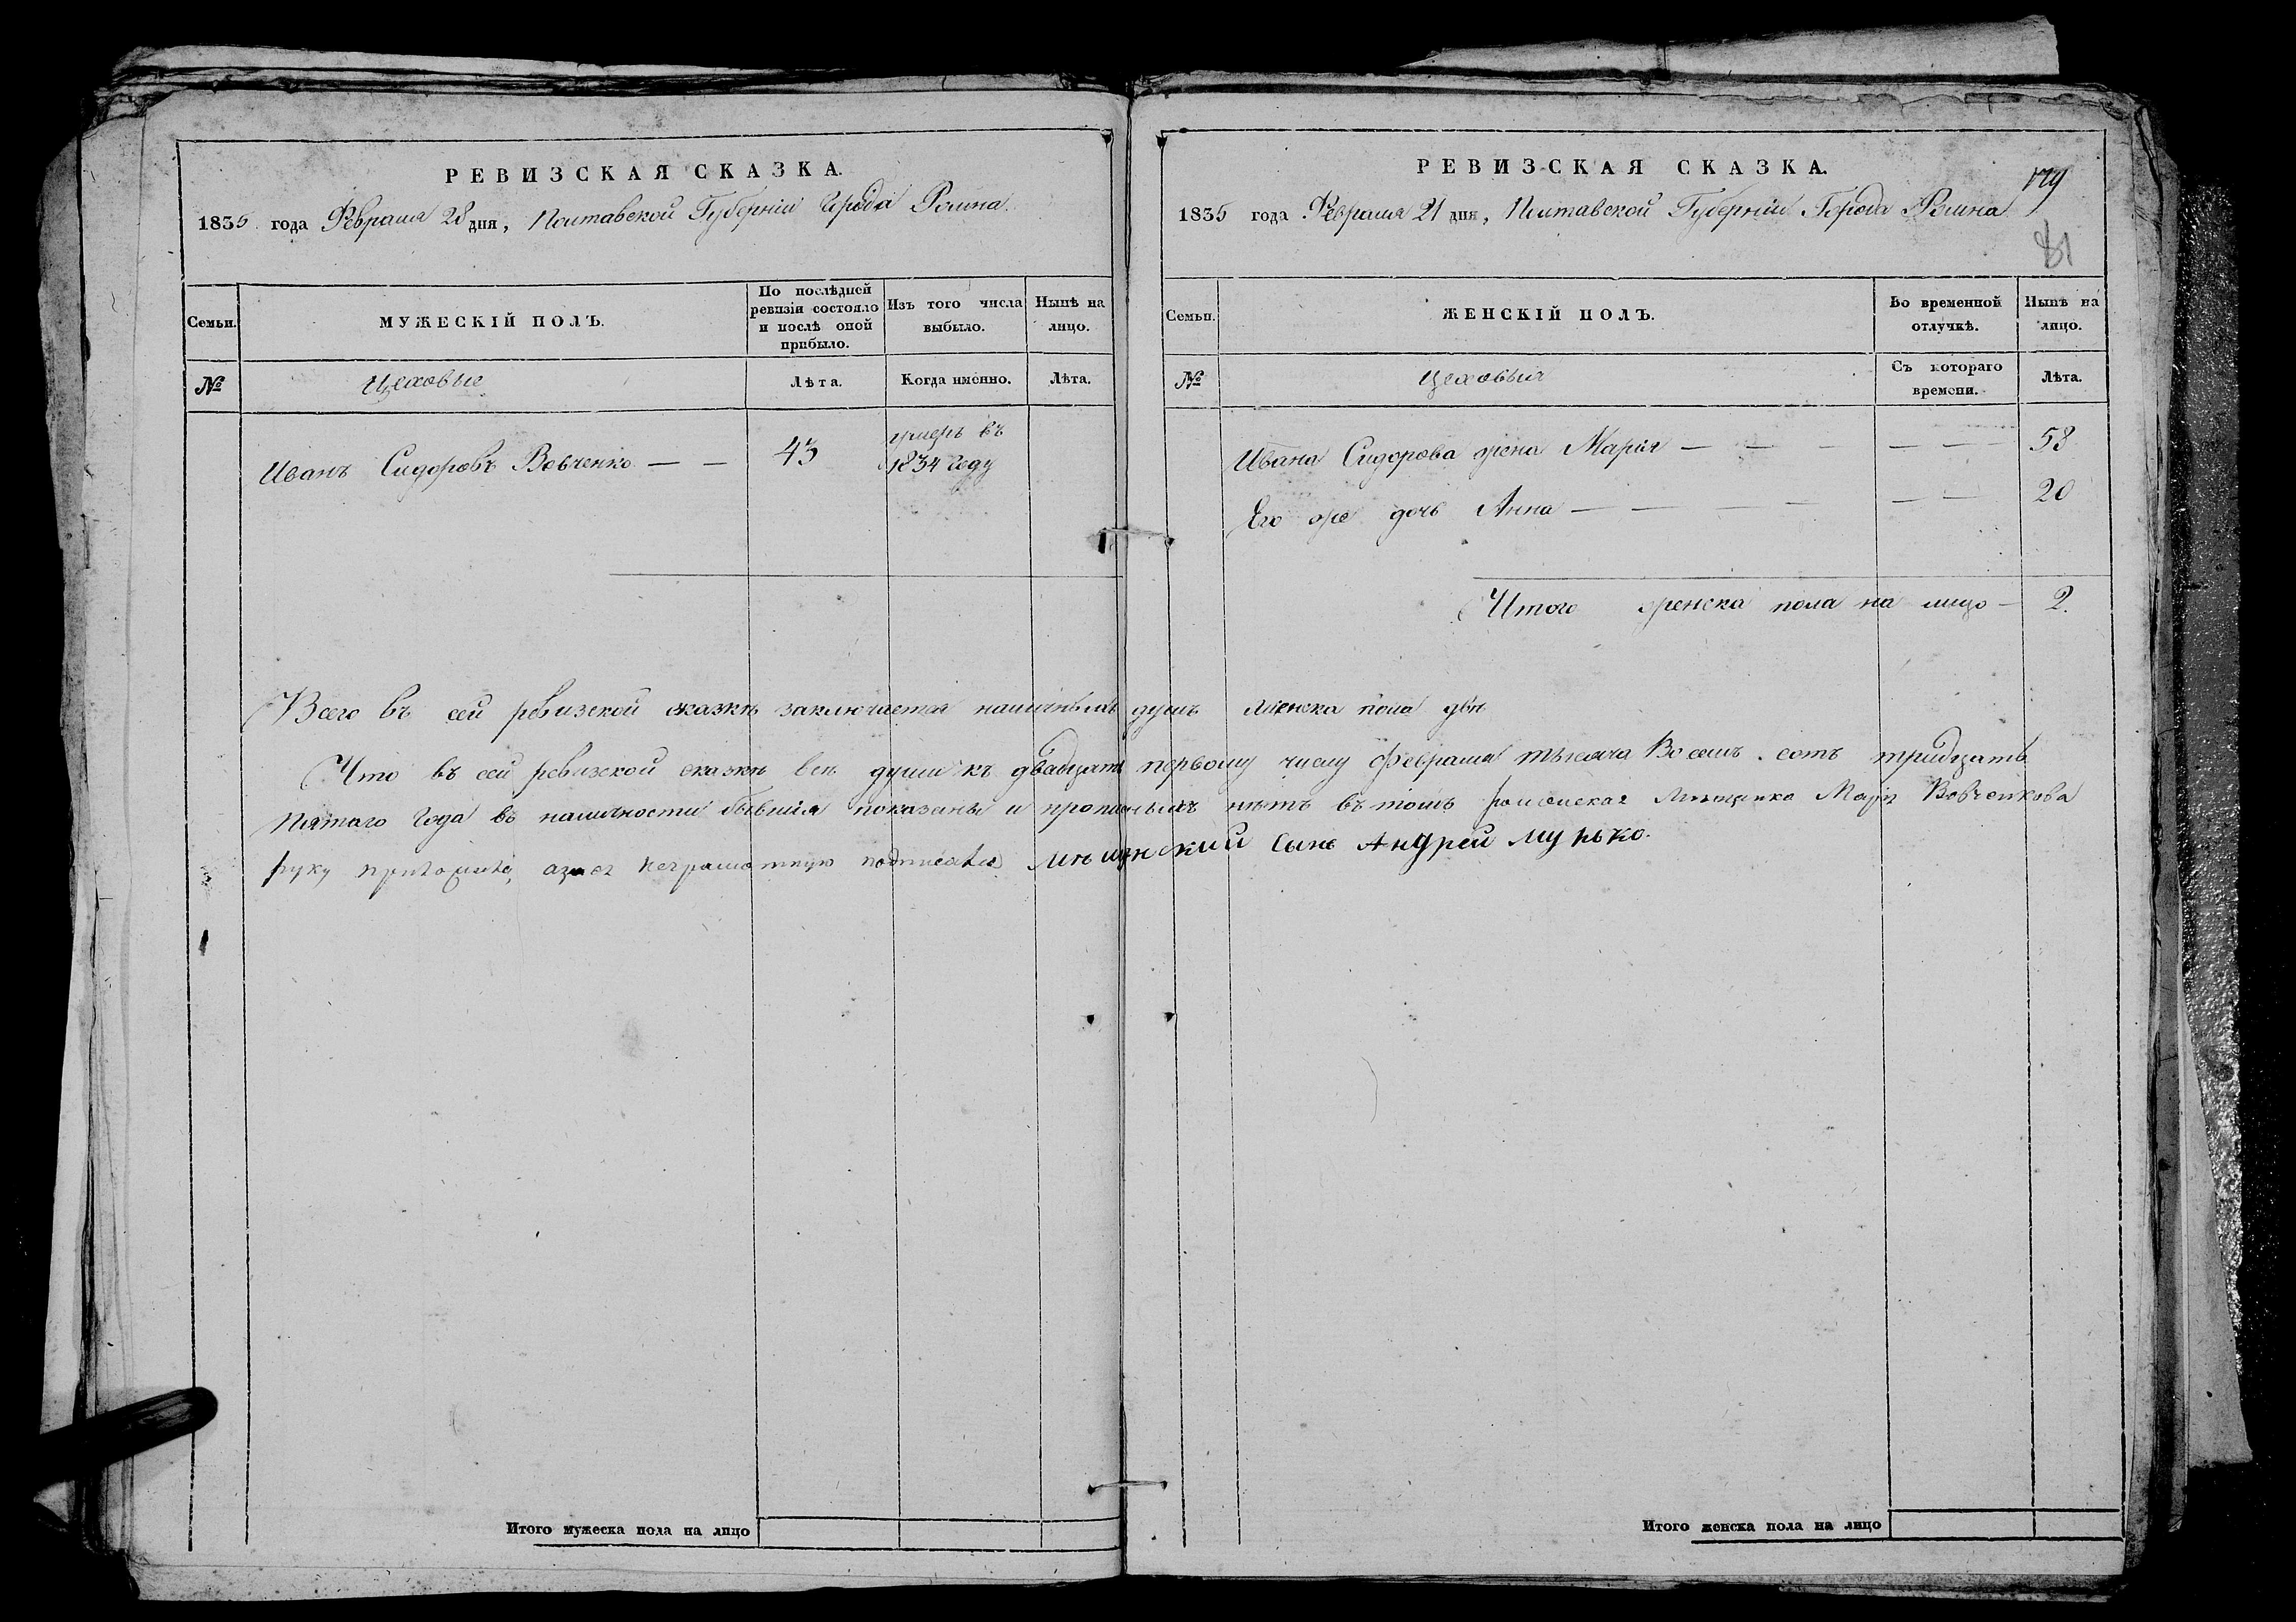 РЕВИЗСКАЯ СКАЗКА.
1835 года Февраля 28 дня, Полтавской Губернiи Города Ромна.
Семьи.
МУЖЕСКIЙ ПОЛЪ.
По послѣдней ревизiи состояло и послѣ оной прибыло.
Изъ того числа выбыло.
Нынѣ на лицо.
№
Цеховые
Лѣта.
Когда именно.
Лѣта.
Иванъ Сидоровъ Вовченко — —
43
умеръ въ
1834 году
РЕВИЗСКАЯ СКАЗКА.
179
1835 года Февраля 21 дня, Полтавской Губернiи Города Ромна
81
Семьи.
ЖЕНСКIЙ ПОЛЪ.
Во временной отлучкѣ.
Нынѣ на лицо.
№
Цеховыя
Съ котораго времени.
Лѣта.
Ивана Сидорова жена Марiя — — — — — — 58
Его же дочь Анна — — — — — — 20
Итого женска пола на лицо — 2.
Всего въ сей ревизской сказкѣ заключается наличныхъ душъ женска пола двѣ
Что въ сей ревизской сказкѣ всѣ души къ двадцать первому числу Февраля тысяча Восемь сотъ тридцать
пятаго Года въ наличности бывшiя показаны и прописныхъ нѣтъ въ томъ роменская Мѣщанка Марiя Вовченкова
руку приложила, а за нея неграмотную подписался Мѣщанский Сынъ Андрей Мунько.
Итого мужеска пола на лицо
Итого женска пола на лицо